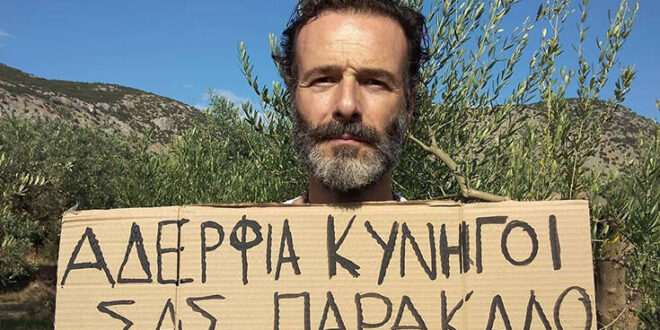 ΑΔΕΡΦΙΑ ΚΥΝΗΓΟΙ
ΣΑΣ ΠΑΡΑΚΑΛΩ